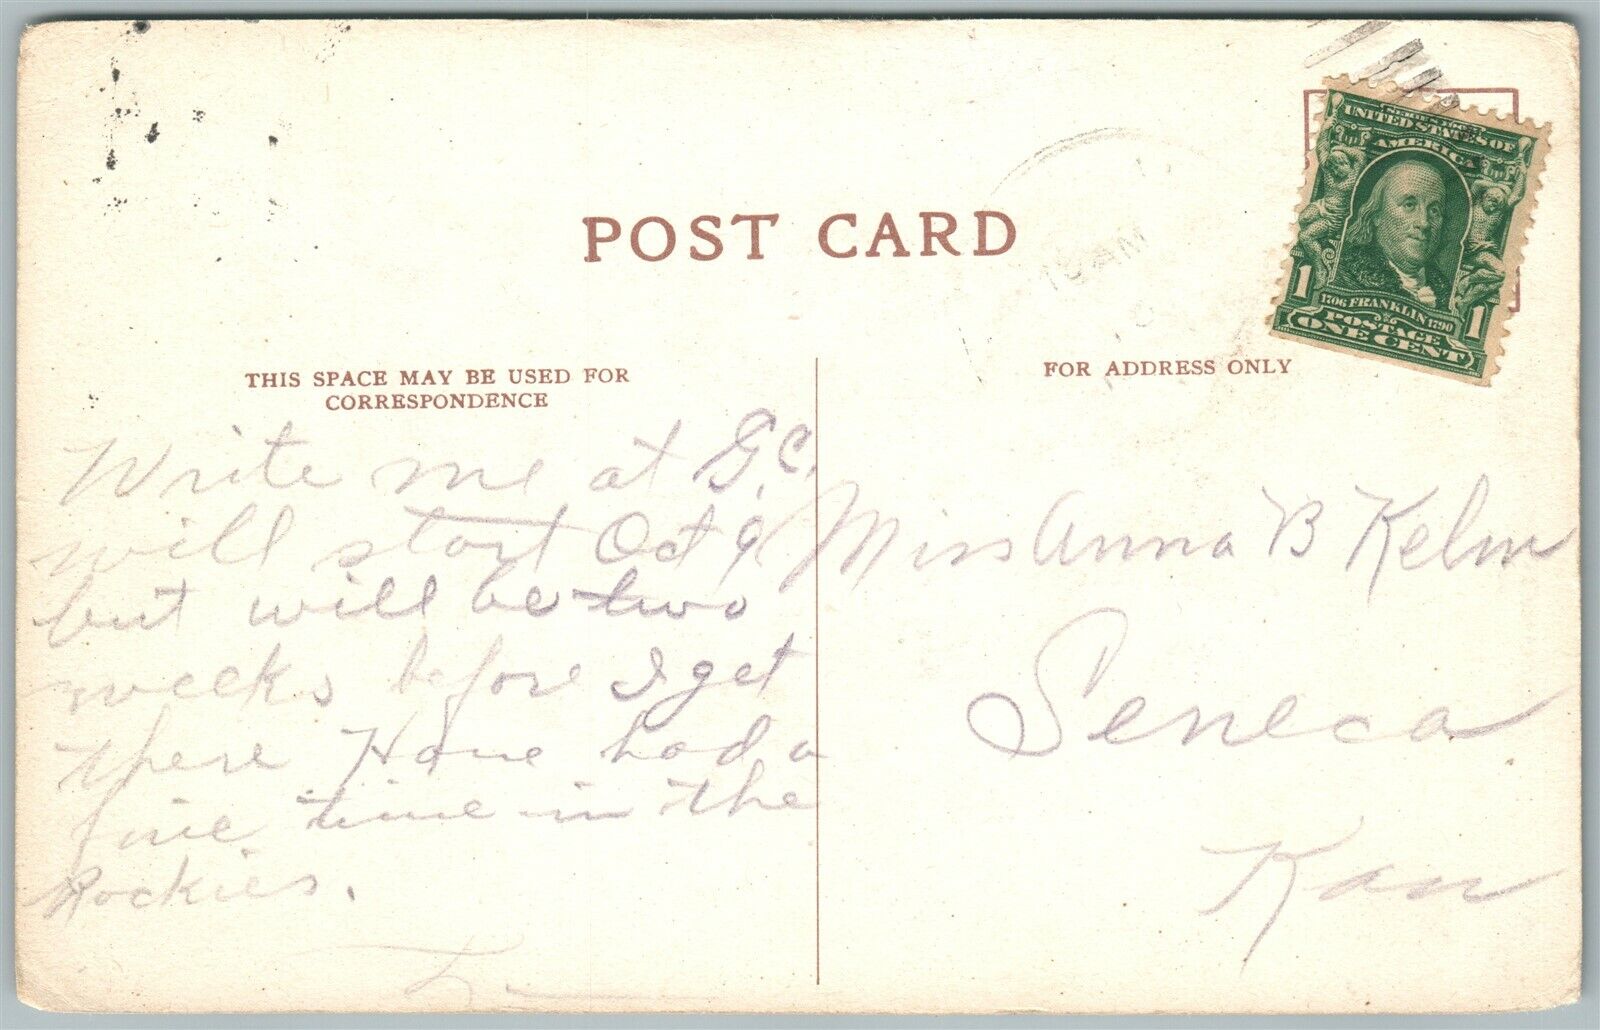 POST CARD
THIS SPACE MAY BE USED FOR
CORRESPONDENCE
FOR ADDRESS ONLY
SERIES 1902
UNITED STATES OF
AMERICA
1706 FRANKLIN 1790
1 1
POSTAGE
ONE CENT
10 AM
Write me at G.C.
will start Oct 9
but will be two
weeks before I get
there Have had a
fine time in the
Rockies.
Miss Anna B Kelm
Seneca
Kan